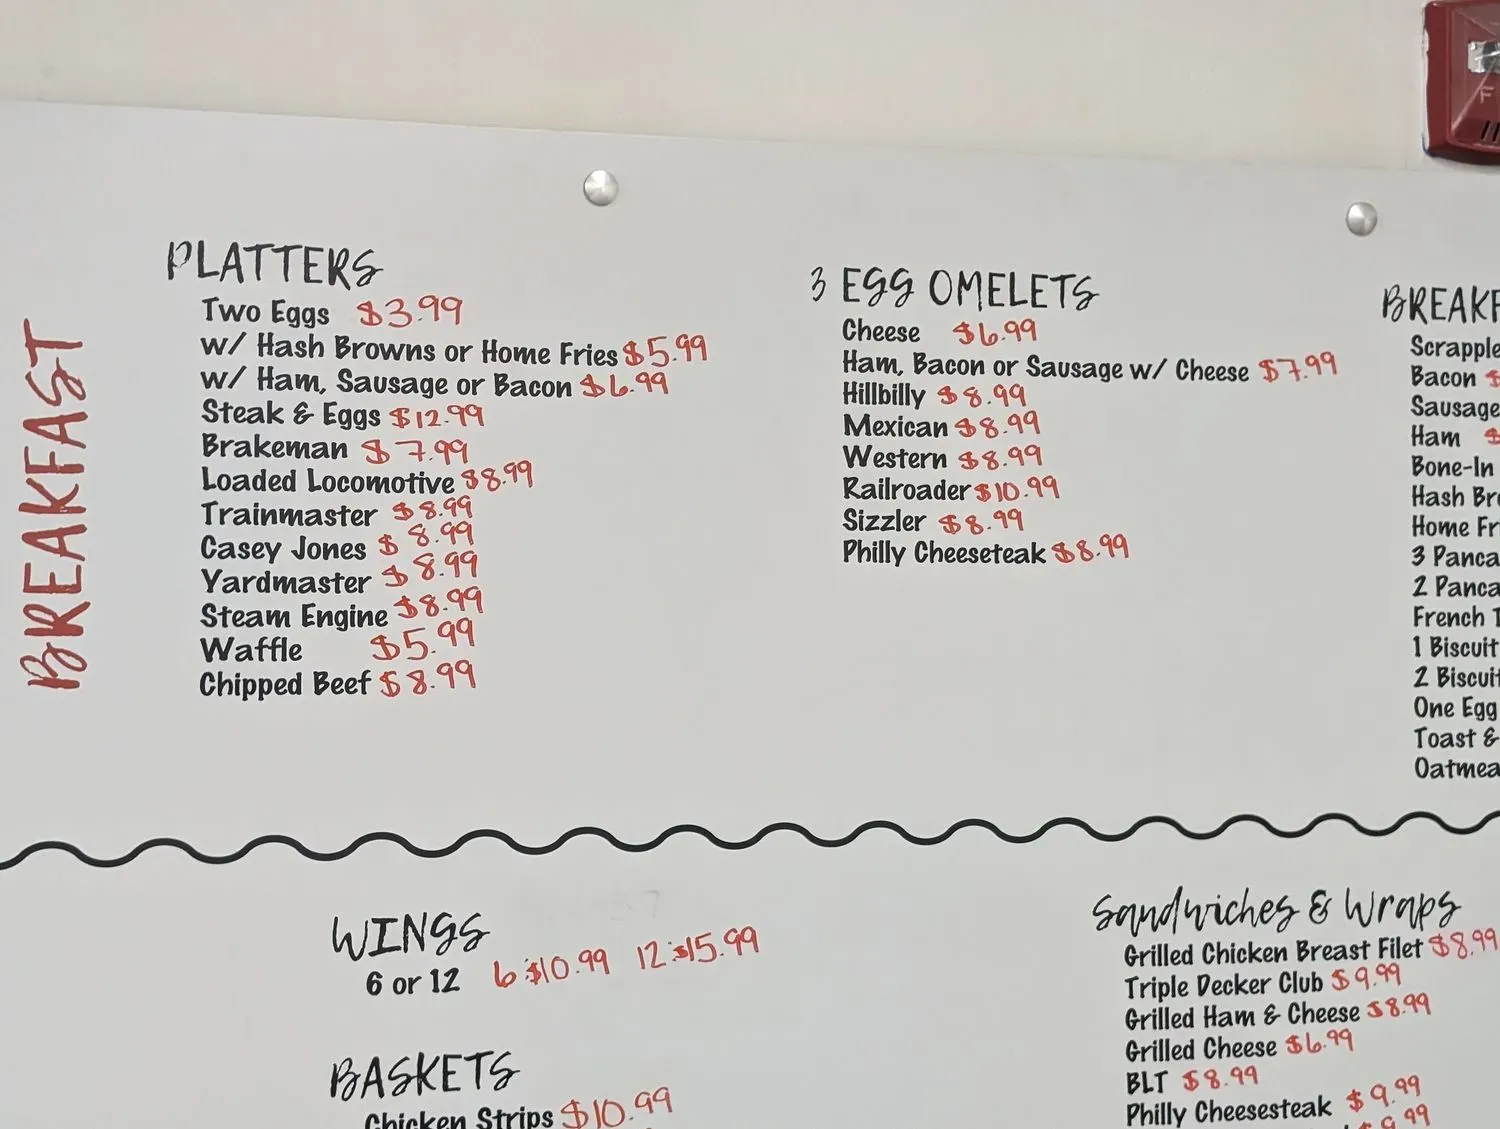 BREAKFAST
PLATTERS
Two Eggs $3.99
w/ Hash Browns or Home Fries $5.99
w/ Ham, Sausage or Bacon $6.99
Steak & Eggs $12.99
Brakeman $7.99
Loaded Locomotive $8.99
Trainmaster $8.99
Casey Jones $8.99
Yardmaster $8.99
Steam Engine $8.99
Waffle $5.99
Chipped Beef $8.99
3 EGG OMELETS
Cheese $6.99
Ham, Bacon or Sausage w/ Cheese $7.99
Hillbilly $8.99
Mexican $8.99
Western $8.99
Railroader $10.99
Sizzler $8.99
Philly Cheeseteak $8.99
Scrapple
Bacon $
Sausage
Ham $
Bone-In
Hash
Home
3
2
French
1 Biscuit
2 Biscuit
One Egg
Toast &
WINGS
6 or 12 6:$10.99 12:$15.99
BASKETS
Chicken Strips $10.99
Sandwiches & Wraps
Grilled Chicken Breast Filet $8.99
Triple Decker Club $9.99
Grilled Ham & Cheese $8.99
Grilled Cheese $6.99
BLT $8.99
Philly Cheesesteak $9.99
9.99
F